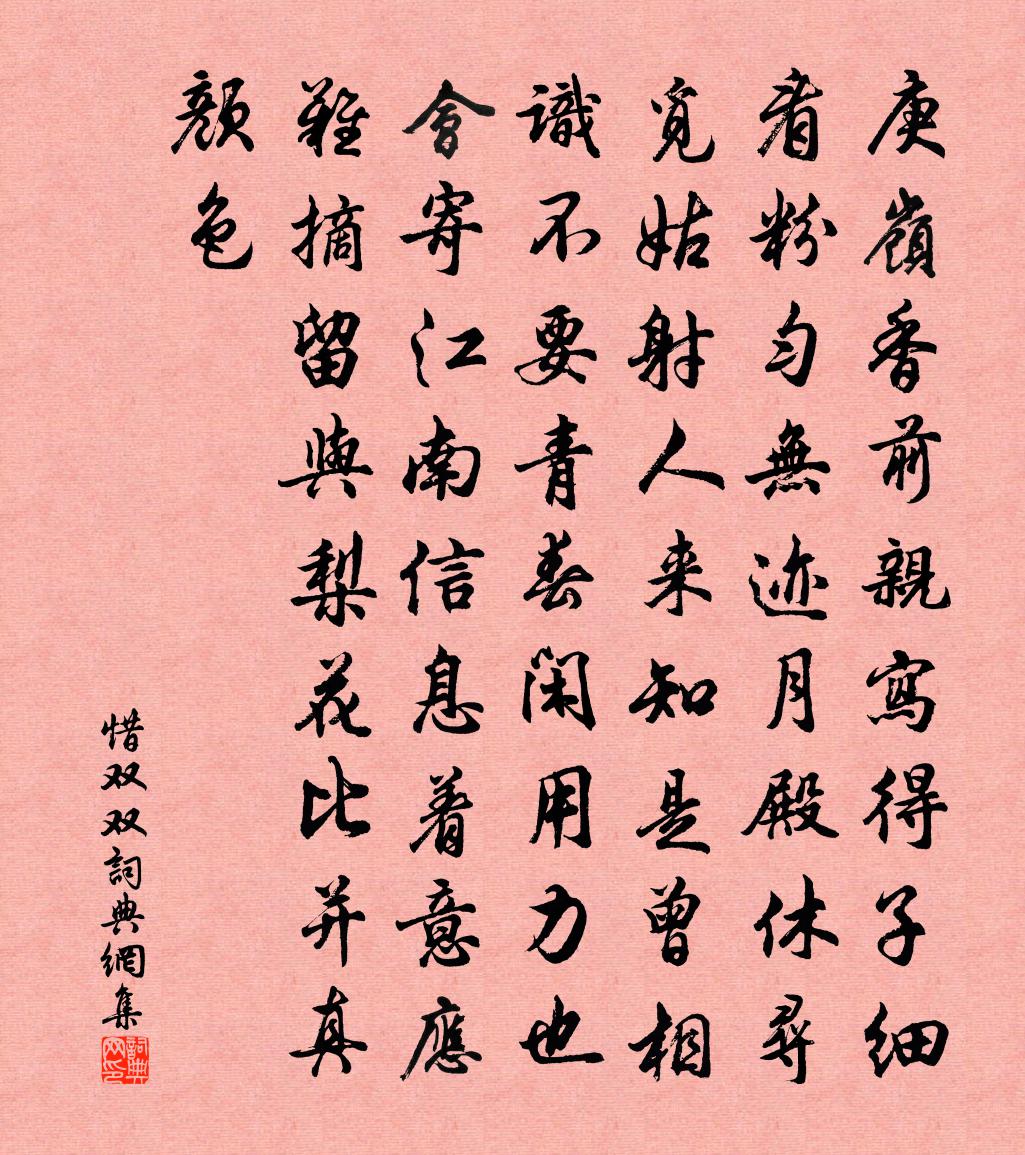 庾嶺香前親寫得子細
看粉匀無迹月殿休尋
覓姑射人来知是曾相
識不要青春閑用力也
會寄江南信息着意應
難摘留與梨花比并真
顔色
惜双双詞典網集
詞典网印